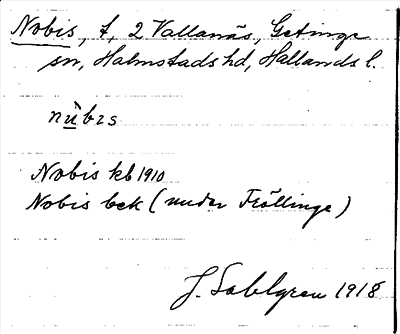 Nobis, t, 2 Vallanäs, Getinge
sn, Halmstads hd, Hallands l.
nùbis
Nobis kb 1910
Nobis bek (under Fröllinge)
J. Sahlgren 1918